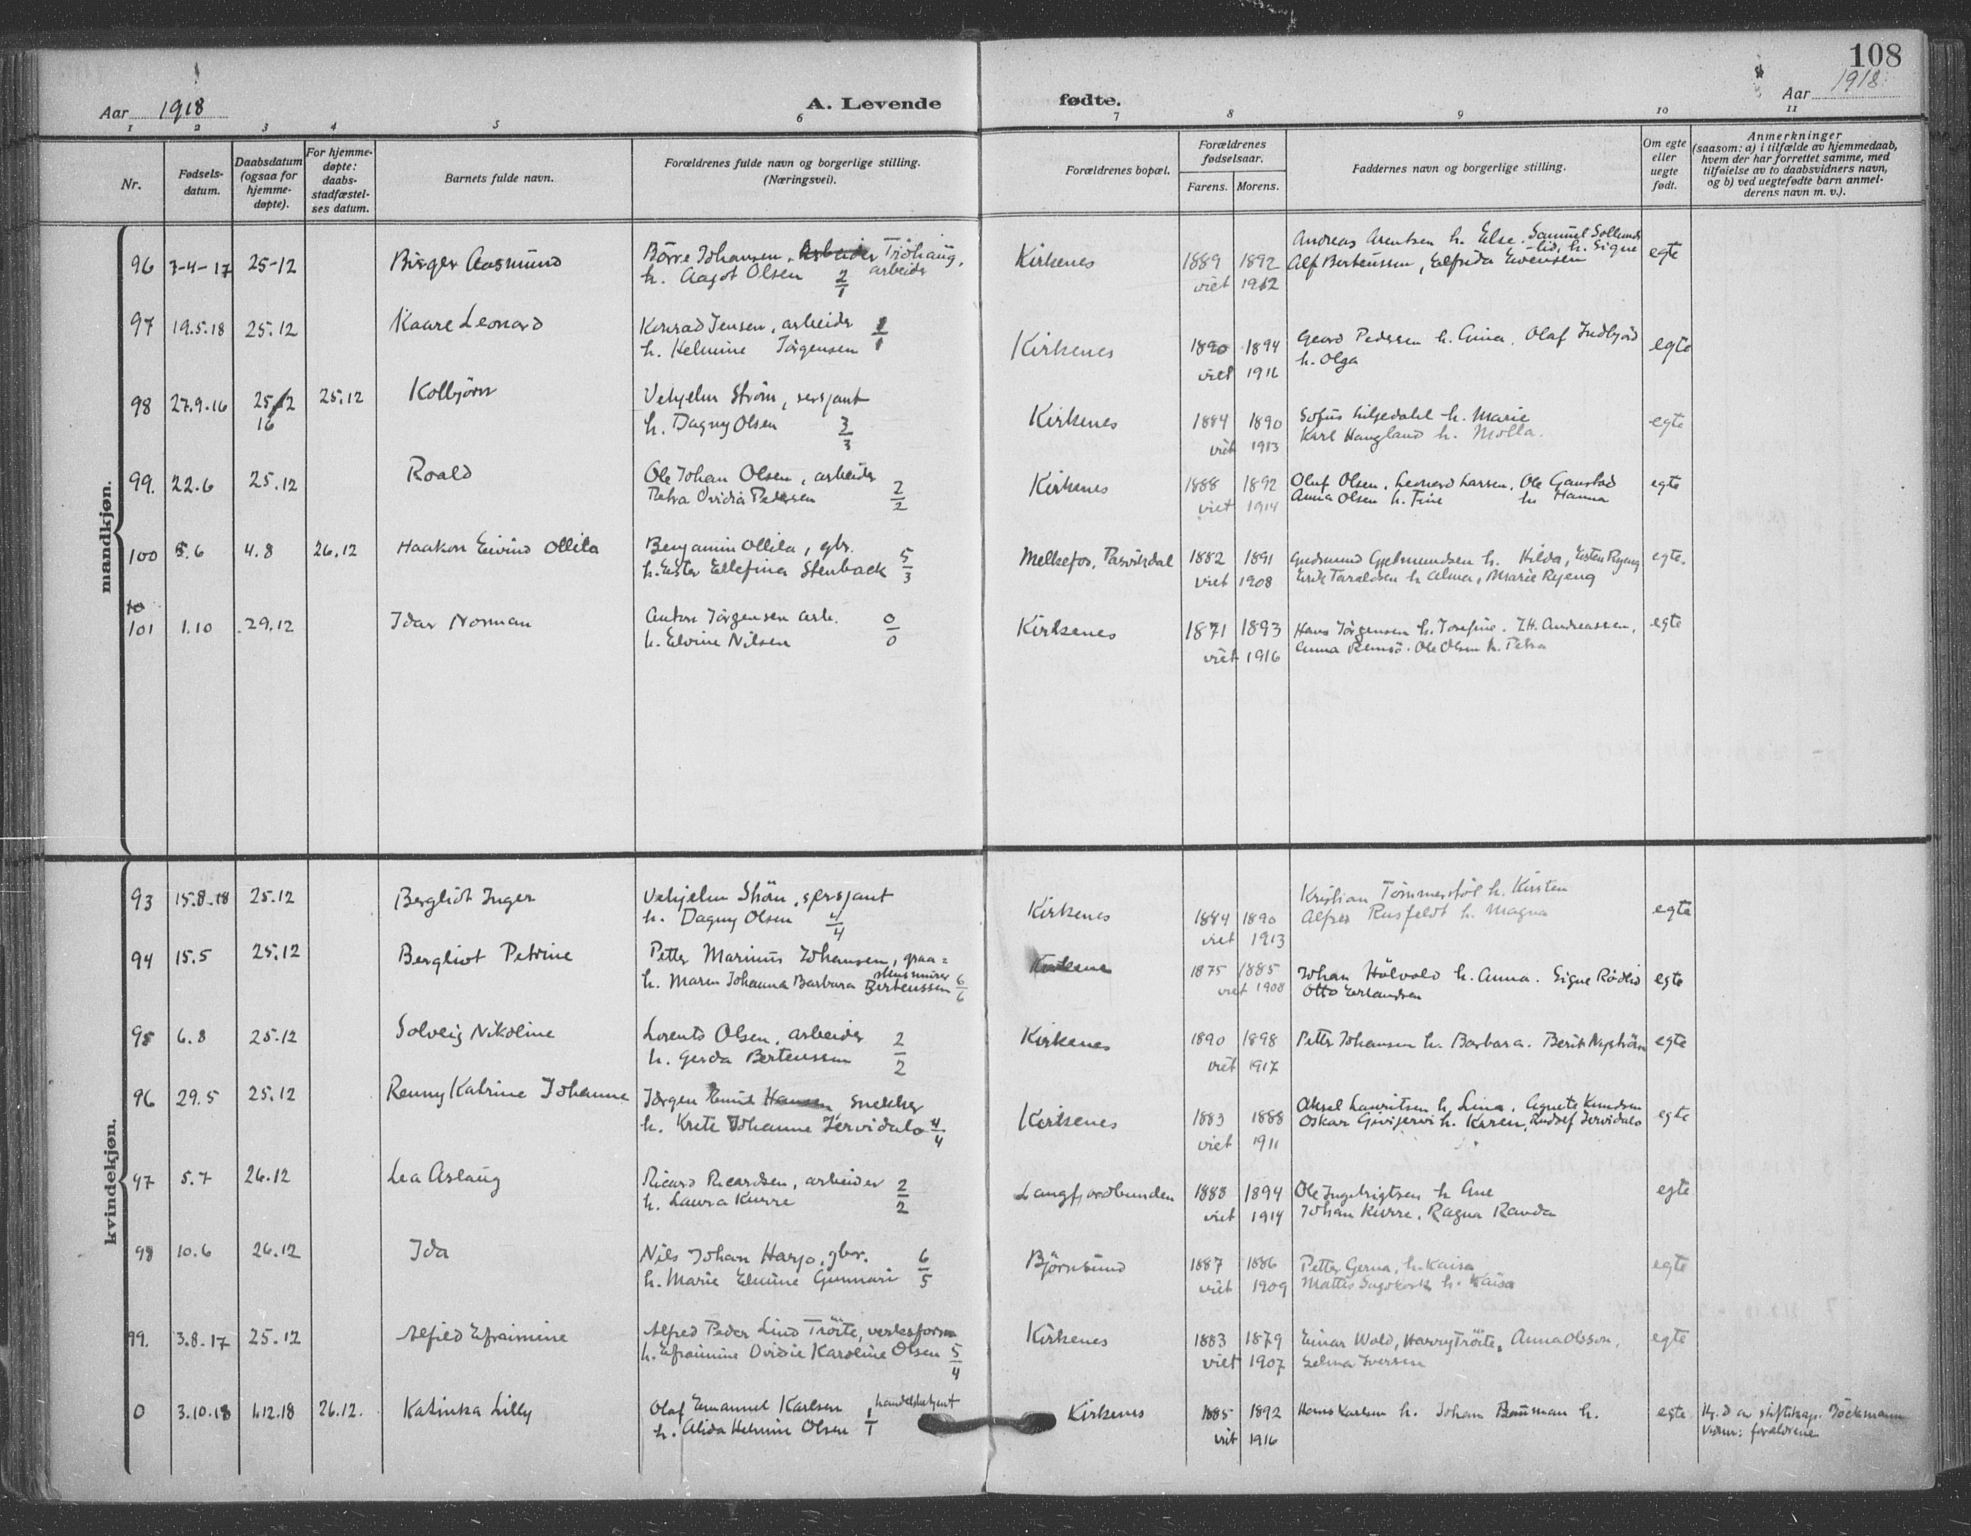 108
Aar 1918
A. Levende fødte.
Aar 1918
1 2 3 4 5 6 7 8 9 10 11
Nr.
Fødsels-
datum.
Daabsdatum
(ogsaa for
hjemme-
døpte).
For hjemme-
døpte:
daabs-
stadfæstel-
ses datum.
Barnets fulde navn.
Forældrenes fulde navn og borgerlige stilling.
(Næringsvei).
Forældrenes bopæl.
Forældrenes
fødselsaar.
Farens. Morens.
Faddernes navn og borgerlige stilling.
Om egte
eller
uegte
født.
Anmerkninger
(saasom: a) i tilfælde av hjemmedaab,
hvem der har forrettet samme, med
tilføielse av to daabsvidners navn,
og b) ved uegtefødte barn anmel-
derens navn m. v.).
mandkjøn.
96 3-4-17 25-12 Birger Aasmund Børre Johansen, arbeider Kirkenes 1889 1892 Andreas Arentsen h. Else. Samuel egte
h. Aagot Olsen 2/1 arbeider viet 1912 Alf Bertenssen, Elfrida Evensen h. Signe
97 19.5.18 25.12 Kaare Leonard Konrad Jensen, arbeider 1/1 Kirkenes 1890 1894 Pedersen h. Gina. Olaf egte
h. Helmine Jørgensen viet 1916 h. Olga
98 27.9.16 25/12 16 25.12 Kolbjørn Vehjelm Strøm, sersjant Kirkenes 1884 1890 Sofus Liljedahl h. Marie egte
h. Dagny Olsen 3/3 viet 1913 Karl Haugland h. Molla.
99. 22.6 25.12 Roald Ole Johan Olsen, arbeider Kirkenes 1888 1892 Oluf Olsen, Leonard Larsen, Ole egte
Petra Ovidia Pedersen 2/2 viet 1914 Anna Olsen h. Tine h. Hanna
100 5.6 4.8 26.12 Haakon Eivind Ollila Benjamin Ollila, gbr. 5/3 Melkefos, Pasvikdal 1882 1891 Gudmund Gjetmundsen h. Hilda, Ryeng egte.
h. Ester Ellefina Stenback viet 1908 Erik Taraldsen h Alma, Marie Ryeng
101 1.10 29.12 Idar Norman Anton Jørgensen arb. 0/0 Kirkenes 1871 1893 Hans Jørgensen h. Josefine. Andreassen, egte
h. Elvine Nilsen viet 1916 Anna Ole Olsen h. Petra
kvindekjøn.
93 15.8.18 25.12 Bergliot Inger Vehjelm Strøm, sersjant Kirkenes 1884 1890 Kristian Tømmerstøl h. Kirsten egte
h. Dagny Olsen 4/4 viet 1913 Alfred Rusfeldt h. Magna
94 15.5 25.12 Bergliot Petrine Petter Marinus Johansen, graa= Kirkenes 1875 1885 Johan Hølvold h. Anna. Signe Rødlid egte
h. Maren Johanna Barbara Bertenssen 6/6 viet 1908 Otto Erlandsen
95 6.8 25.12 Solveig Nikoline Lorents Olsen, arbeider 2/2 Kirkenes 1890 1898 Petter Johansen h. Barbara. Berit egte
h. Gerda Bertenssen viet 1917
96 29.5 25.12 Renny Katrine Johanne Jørgen Emil Hansen snekker Kirkenes 1883 1888 Aksel Lauritsen h. Lina, Agnete Knudsen egte
h. Krete Johanne Jervidalo 4/4 viet 1911 Oskar h. Karen, Rudolf Jervidalo
97 5.7 26.12 Lea Aslaug Ricard Ricardsen, arbeider 2/2 Langfjordbunden 1888 1894 Ole Ingebrigtsen h Ane egte
h. Laura Kurre viet 1914 Johan Kurre, Ragna Randa
98 10.6 26.12 Ida Nils Johan Harjo, gbr. 6/5 Bjørnsund 1887 1886 Petter Gerna, h. Kaisa egte
h. Marie Elmine Gunnari viet 1909 Mattis h. Kaisa
99. 3.8.17 25.12 Alfild Efraimine Alfred Peder Lind Trøite, verksform Kirkenes 1883 1879 Einar Wold, Harry Trøite, Anna Olsson, egte
h. Efraimine Ovidie Karoline Olsen 5/4 viet 1907 Selma Iversen
0 3.10.18 1.12.18 26.12. Katinka Lilly Olaf Emanuel Karlsen handelsbetjent 1/1 Kirkenes 1885 1892 Hans Karlsen h. Johan Bauman h. egte Hj. D av stiftskap. Bøckmann
h. Alida Helmine Olsen viet 1916 Vidner: forældrene